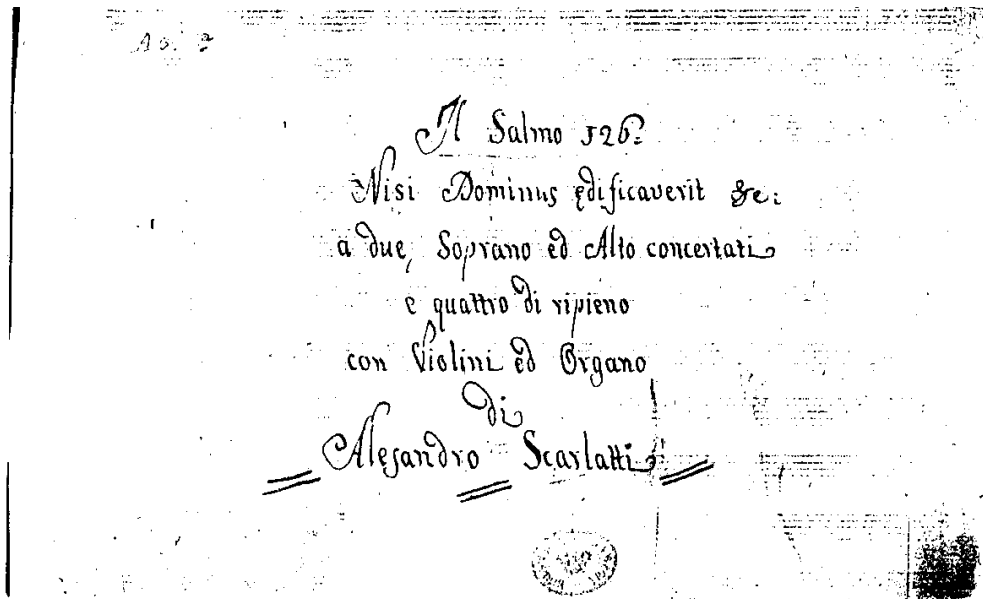 Il Salmo 126.
Nisi Dominus ędificaverit &c:
a due, Soprano ed Alto concertati
e quattro di ripieno
con Violini ed Organo
di
Alesandro Scarlatti